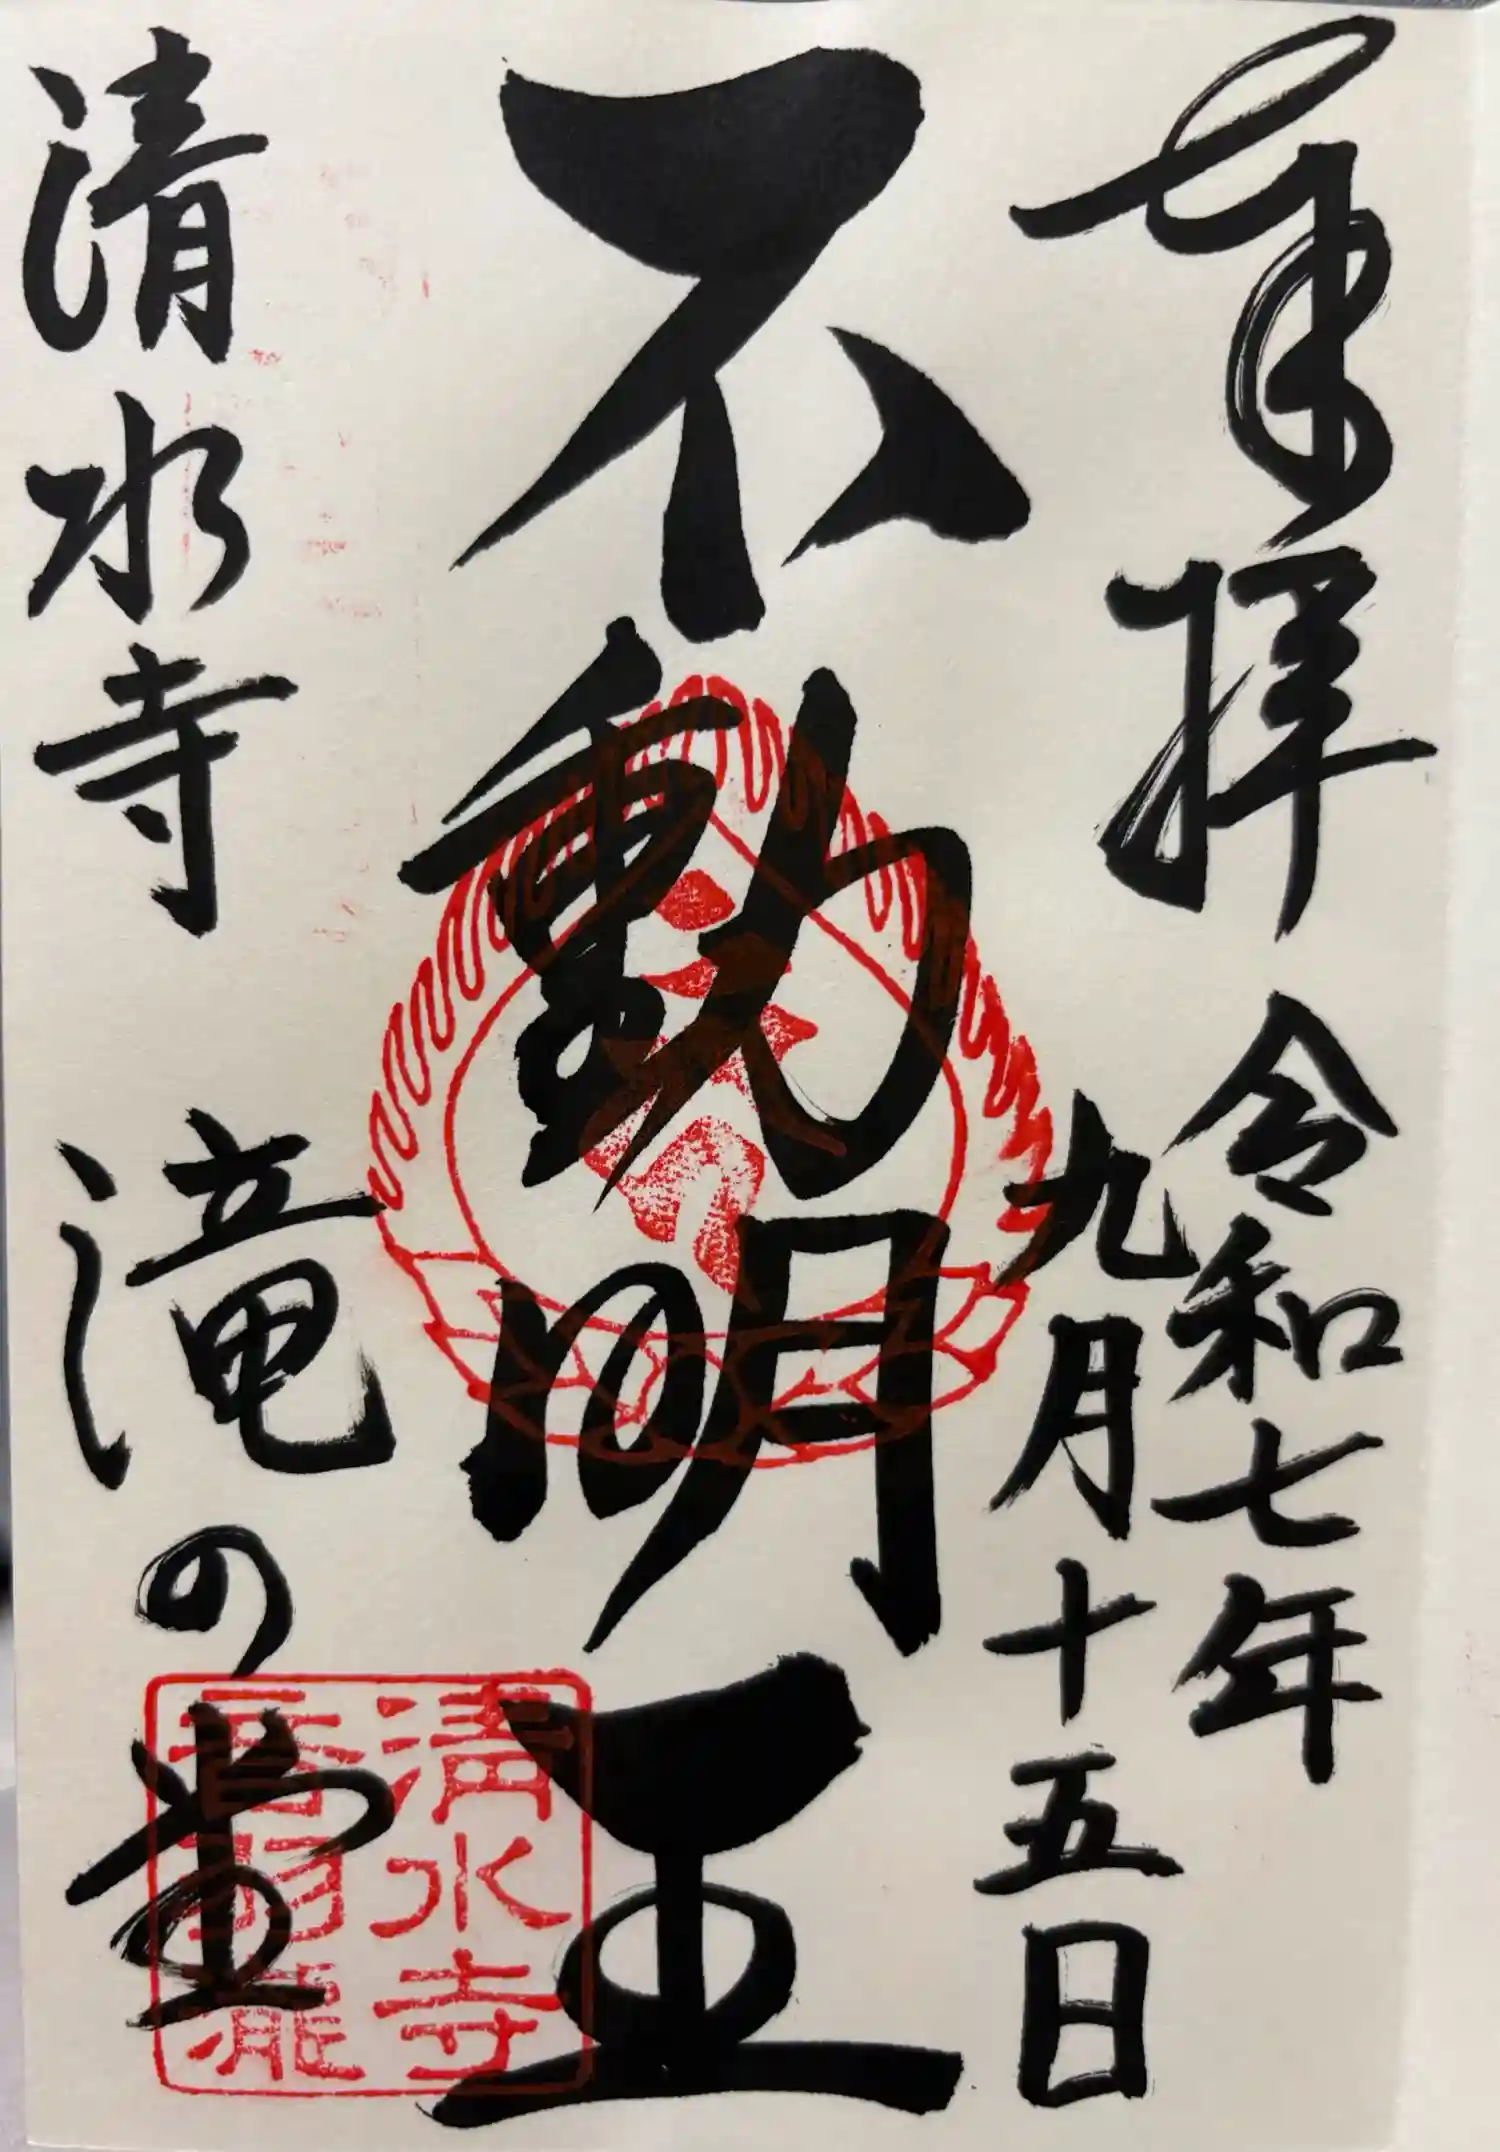 奉拝
令和七年
九月十五日
不動明王
清水寺 滝の堂
清水寺
音羽瀧